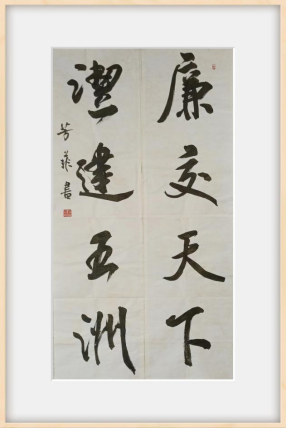 廉交天下
潔達五洲
芳華書